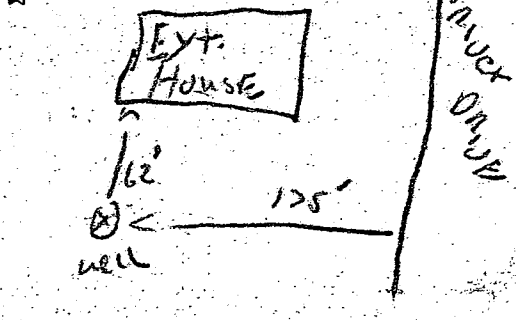 Eyt.
House
62'
135'
well
DRIVE